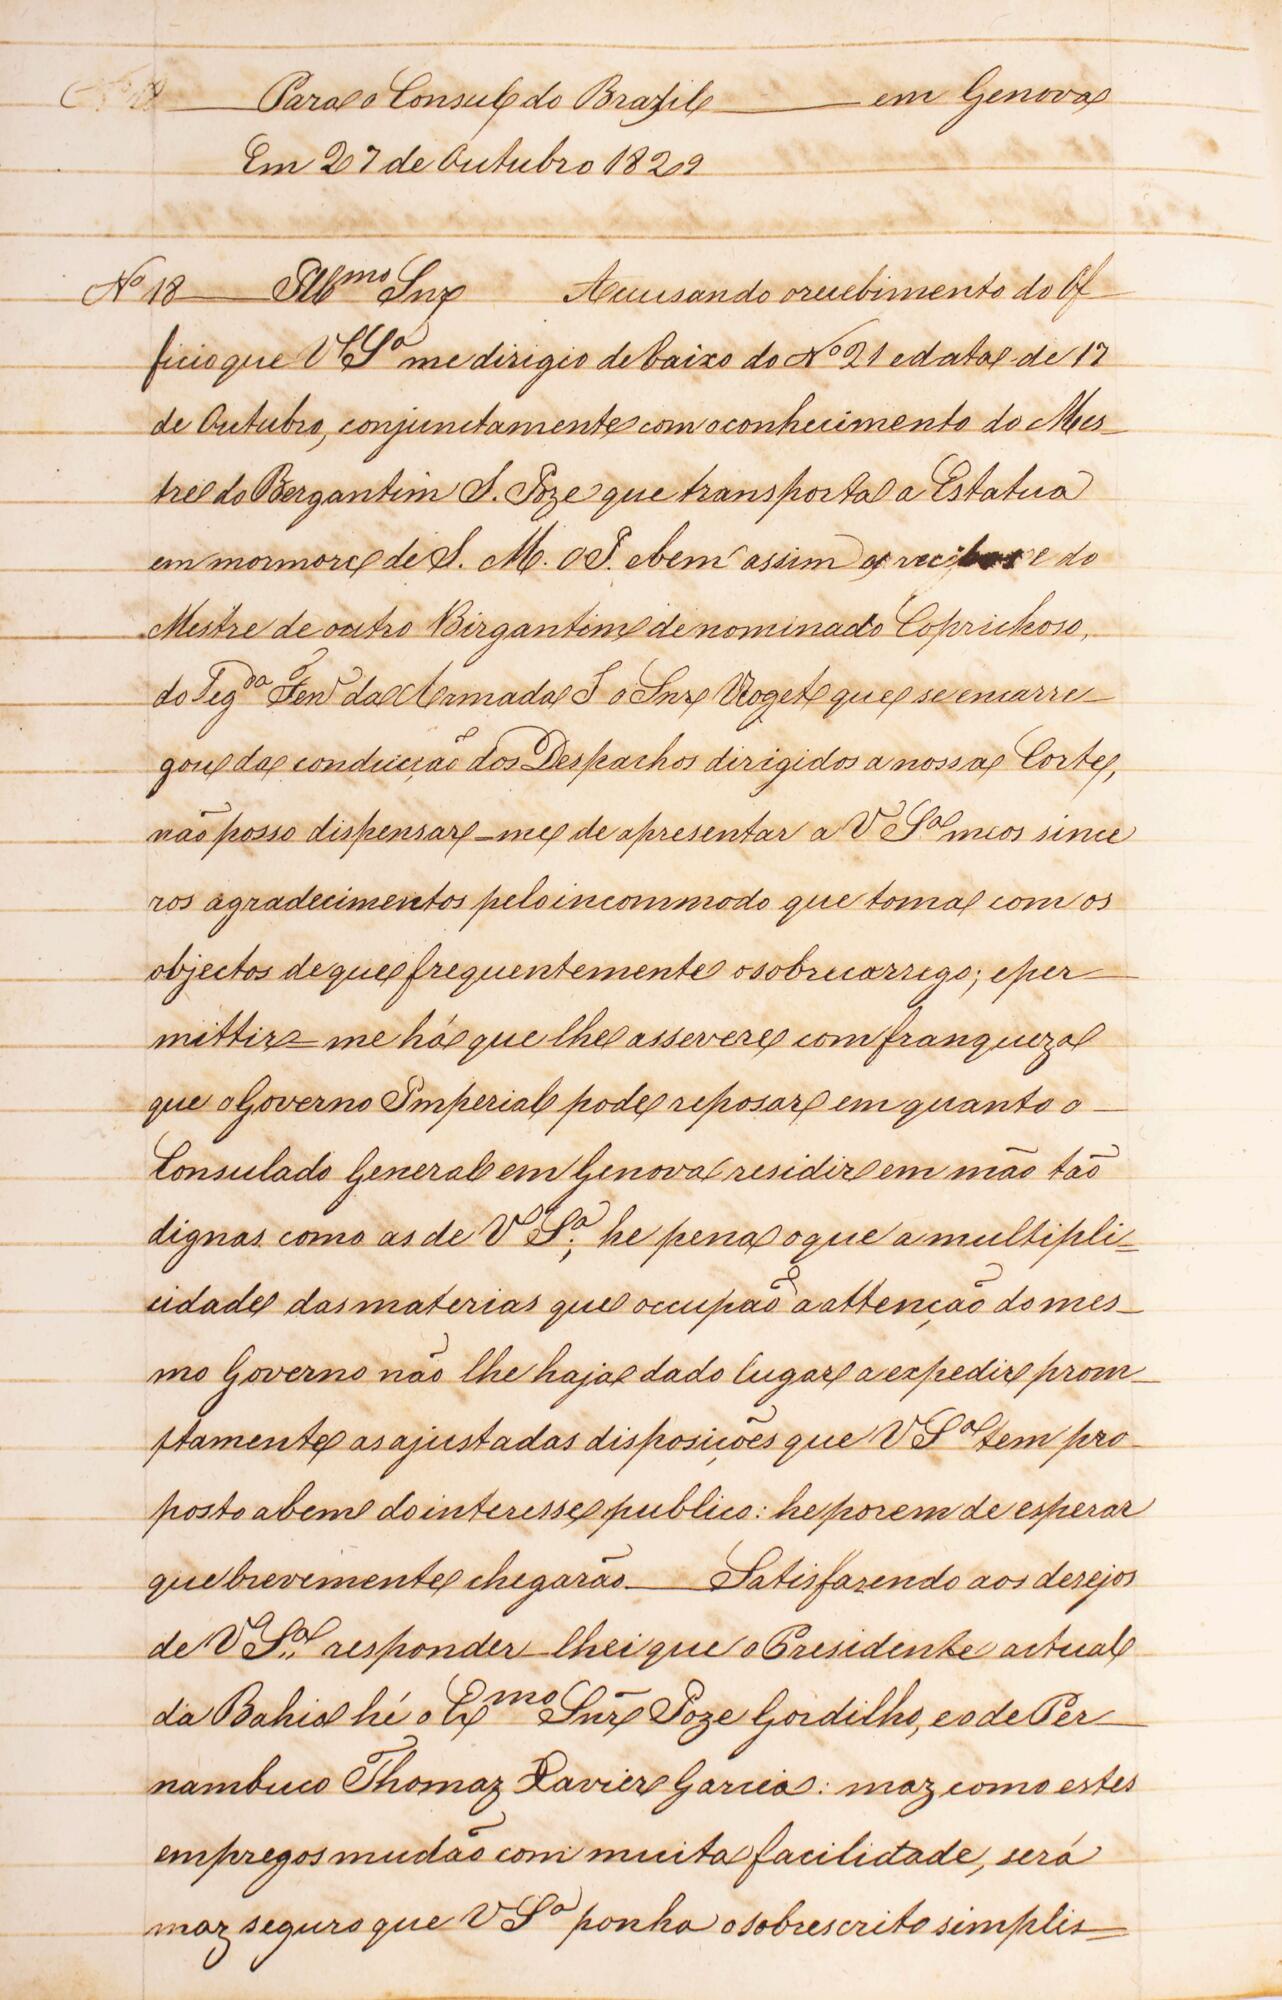 Nº 18 Para o Consul do Brazil em Genova
Em 27 de Outubro 1829
Nº 18 Illmo Snr Accusando o recebimento do Of
ficio que V Sª me dirigio debaixo do Nº 21 e data de 17
de Outubro, conjunctamente com o conhecimento do Mes-
tre do Bergantim S. Joze que transporta a Estatua
em mormore de S. M. O I. e bem assim o do
Mestre de outro Birgantim denominado Coprichoso,
do Segdo Ten da Armada I o Snr Roget que se encarre-
gou da conducção dos Despachos dirigidos a nossa Corte,
não posso dispensar-me de apresentar a V Sª meos since
ros agradecimentos pelo incommodo que toma com os
objectos de que frequentemente o sobrecarrego; e per-
mittir-me há que lhe assevere com franqueza
que o Governo Imperial pode reposar em quanto o
Consulado General em Genova residir em mão tão
dignas como as de V Sª; he pena o que a multipli=
cidade das materias que occupão a attenção do mes-
mo Governo não lhe haja dado lugar a expedir prom-
ptamente as ajustadas disposições que V Sª tem pro
posto a bem do interesse publico: he porem de esperar
que brevemente chegarão. Satisfazendo aos desejos
de V Sª, responder-lhei que o Presidente actual
da Bahia hé o Exmo Snr Joze Gordilho, e o de Per-
nambuco Thomaz Xavier Garcia: maz como estes
empregos mudão com muita facilidade, será
maz seguro que V Sª ponha o sobrescrito simplis=